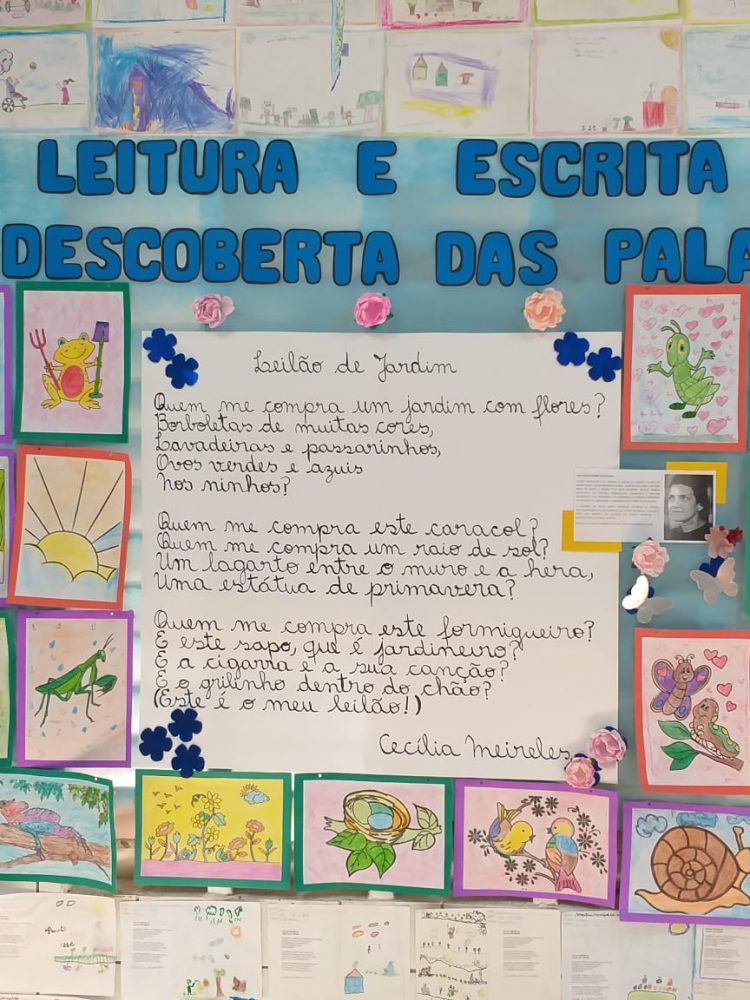 LEITURA E ESCRITA
DESCOBERTA DAS PALA
Leilão de Jardim
Quem me compra um jardim com flores?
Borboletas de muitas cores,
Lavadeiras e passarinhos,
Ovos verdes e azuis
Nos ninhos?
Quem me compra este caracol?
Quem me compra um raio de sol?
Um lagarto entre o muro e a hera,
Uma estátua de primavera?
Quem me compra este formigueiro?
E este sapo, que é jardineiro?
E a cigarra e a sua canção?
E o grilinho dentro do chão?
(Este é o meu leilão!)
Cecília Meireles